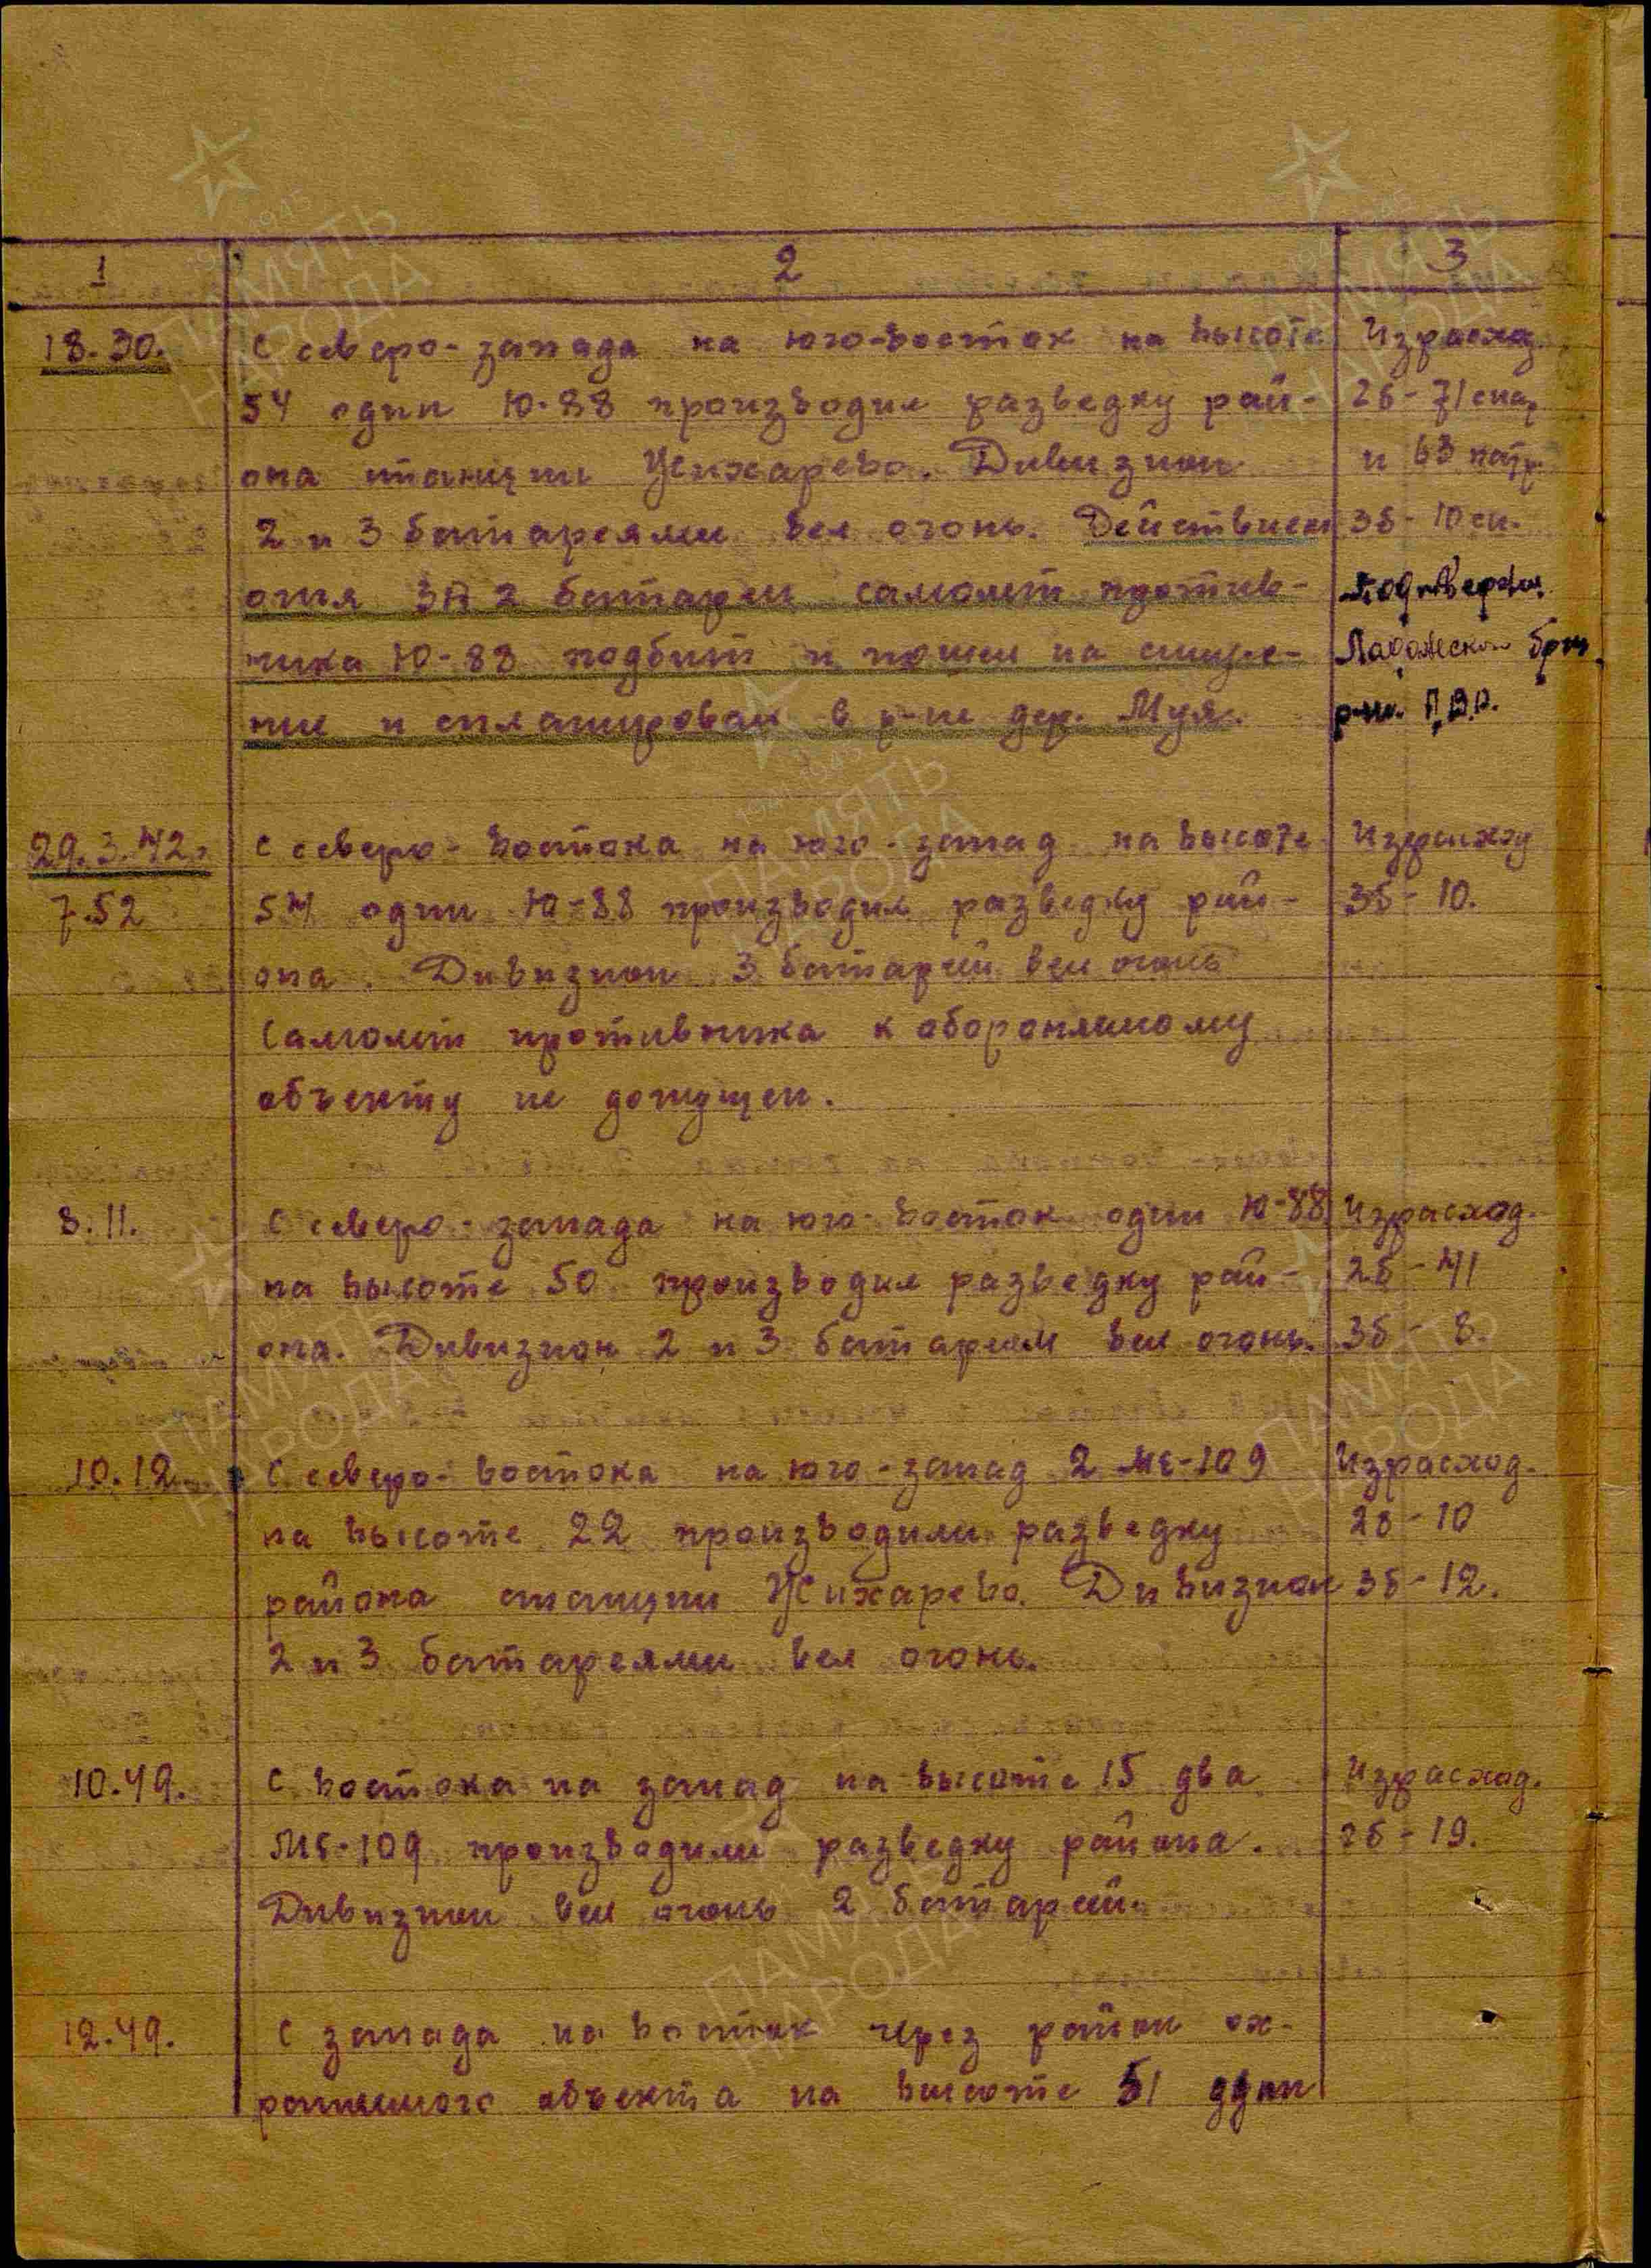 1 2 3
18.30. с северо-запада на юго-восток на высоте Израсход.
54 один Ю-88 производил разведку рай- 2б-71 снар
она станции Жихарево. Дивизион и 63 патр.
2 и 3 батареями вел огонь. Действием 3б-10 сн.
огня ЗА 2 батареи самолет против- Подтвержд.
ника Ю-88 подбит и пошел на сниже- Ладожской бриг
ние и спланировал в р-не дер. Муя. р-на П.В.О.
29.3.42. с северо-востока на юго-запад на высоте Израсход
7.52 54 один Ю-88 производил разведку рай- 3б-10.
она. Дивизион 3 батареей вел огонь
Самолет противника к обороняемому
объекту не допущен.
8.11. с северо-запада на юго-восток один Ю-88 Израсход.
на высоте 50 производил разведку рай- 2б-41
она. Дивизион 2 и 3 батареям вел огонь. 3б-8.
10.12 с северо-востока на юго-запад 2 МЕ-109 Израсход.
на высоте 22 производили разведку 2б-10
района станции Жихарево. Дивизион 3б-12.
2 и 3 батареями вел огонь.
10.49. с востока на запад на высоте 15 два Израсход.
МЕ-109 производили разведку района. 2б-19.
Дивизион вел огонь 2 батареей.
12.49. с запада на восток через район ох-
раняемого объекта на высоте 51 один